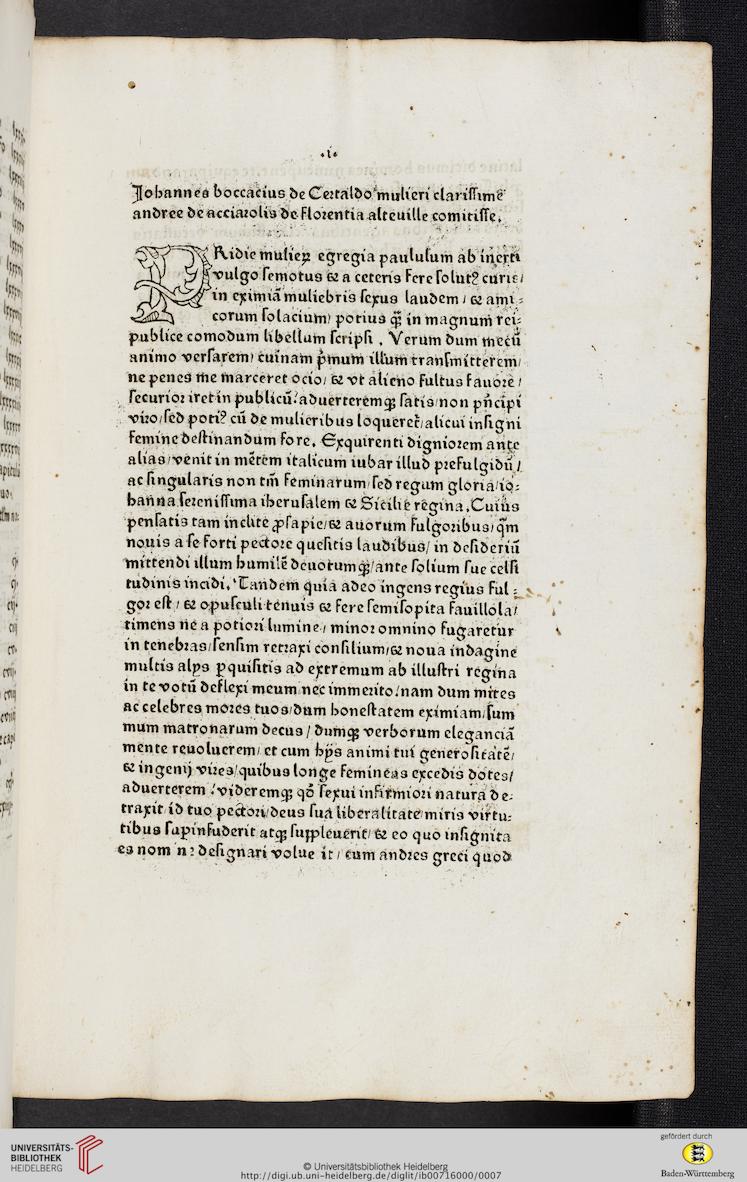 .i.
Johannes boccacius de Certaldo mulieri clarissime
andree de acciarolis de Florentia alteuille comitisse.
PRidie mulieꝝ egregia paululum ab inerti
vulgo semotus ⁊ a ceteris fere solutꝰ curis/
in eximiā muliebris sexus laudem / ⁊ ami⸗
corum solacium/ potius qꝫ̄ in magnum rei⸗
publice comodum libellum scripsi . Verum dum mecū
animo versarem/ cuinam p̄mum illum transmitterem/
ne penes me marceret ocio/ ⁊ vt alieno fultus fauore /
securior iret in publicū/ aduerteremqꝫ satis/ non pn̄cipi
viro/ sed potiꝰ cū de mulieribus loqueret᷑/ alicui insigni
femine destinandum fore. Exquirenti digniorem ante
alias/ venit in mētem italicum iubar illud prefulgidū/
ac singularis non tm̄ feminarum/ sed regum gloria/ io⸗
hanna serenissima iherusalem ⁊ Sicilie regina. Cuius
pensatis tam inclite ꝓsapie/ ⁊ auorum fulgoribus/ qm̄
nouis a se forti pectore quesitis laudibus/ in desideriū
mittendi illum humilē deuotumqꝫ/ ante solium sue celsi
tudinis incidi. Tandem quia adeo ingens regius ful⸗
gor est / ⁊ opusculi tenuis ⁊ fere semisopita fauillola/
timens ne a potiori lumine / minor omnino fugaretur
in tenebras/ sensim retraxi consilium/ ⁊ noua indagine
multis alijs ꝑquisitis ad extremum ab illustri regina
in te votū deflexi meum nec immerito/ nam dum mites
ac celebres mores tuos/ dum honestatem eximiam/ sum
mum matronarum decus / dumqꝫ verborum eleganciā
mente reuoluerem/ et cum hijs animi tui generositatē/
⁊ ingenij vires/ quibus longe femineas excedis dotes/
aduerterem / videremqꝫ qō sexui infirmiori natura de⸗
traxit/ id tuo pectori/ deus sua liberalitate/ miris virtu⸗
tibus supinfuderit atqꝫ suppleuerit/ ⁊ eo quo insignita
es nomine designari voluerit/ cum andres greci quod
UNIVERSITÄTS-
BIBLIOTHEK
HEIDELBERG
© Universitätsbibliothek Heidelberg
http://digi.ub.uni-heidelberg.de/diglit/ib00716000/0007
gefördert durch
Baden-Württemberg